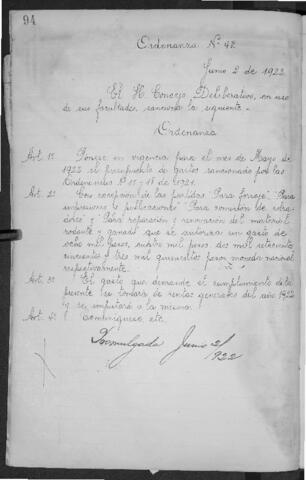 94
Ordenanza Nº 42
Junio 2 de 1922
El H. Concejo Deliberativo, en uso
de sus facultades, sanciona la siguiente
Ordenanza
Art. 1º Ponese en vigencia para el mes de Mayo de
1922 el presupuesto de gastos sancionado por las
Ordenanzas Nº 11 de 1921.
Art. 2º Con excepcion de las partidas "Para forraje" "Para
impresiones y publicaciones" "Para comision de
y "Para reparacion y renovacion del material
rodante y ganado" que se autoriza un gasto de
ocho mil pesos, cuatro mil pesos, dos mil setecientos
cincuenta y tres mil quinientos pesos moneda nacional
respectivamente.
Art. 3º El gasto que demande el cumplimiento de la
presente se tomará de rentas generales del año 1922
y se imputará a la misma.
Art. 4º Comuniquese, etc.
Promulgada Junio 2/
1922